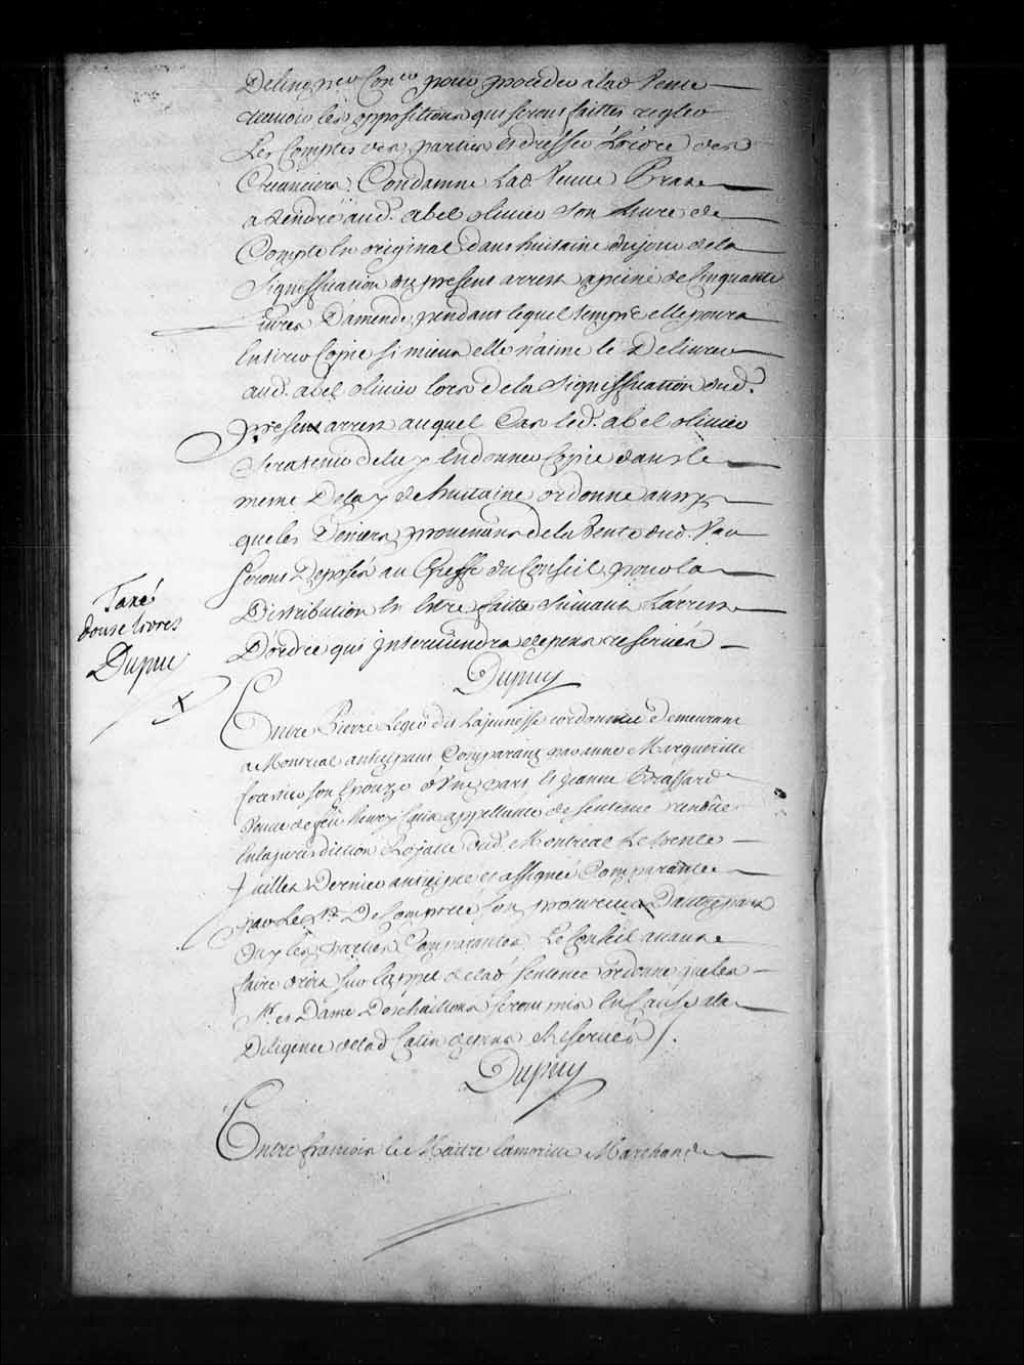 Delino pr.er Con.er pour proceder a lad Vente
Les Comptes des parties et dresser L'ordre des
Creanciers, Condamne Lad Veuve
a Rendre aud. abel olivier son Livre de
Compte En original dans huitaine du jour de la
Signiffication du present arrest a peine de Cinquante
Livres D'amende, pendant lequel temps elle poura
En tirer Copie si mieux elle n'aime le Delivrer
aud. abel olivier lors de la Signiffication dud.
present arrest auquel Cas led. abel olivier
sera tenu de luy En donner Copie dans le
meme Delay de huitaine, ordonne aussy
que les Deniers provenans de la Vente dud.
seront Deposés au Greffe du Conseil pour la
Distribution En Estre faitte suivant L'arrest
D'ordre qui Interviendra depens reservés
Taxé
douse livres
Dupuy
Dupuy
Entre Pierre dit Lajeunesse cordonnier demeurant
a Montreal anticipant Comparant par anne Marguerite
son Epouze d'Une part, et Jeanne Brassard
Veuve de feu henry Catin appellante de sentence rendüe
En la jurisdiction Royalle dud. Montreal Le trente
Juillet Dernier anticipée et assignée Comparante
par Le Sr. son procureur D'autre part
Ouy les parties Comparantes, Le Conseil avant
faire droit sur l'appel de lad sentence ordonne que les
Sr. et Dame Deschaillons seront mis En Cause a la
Diligence de lad Catin depens Reservés /.
Dupuy
Entre francois le Maitre lamorille Marchand